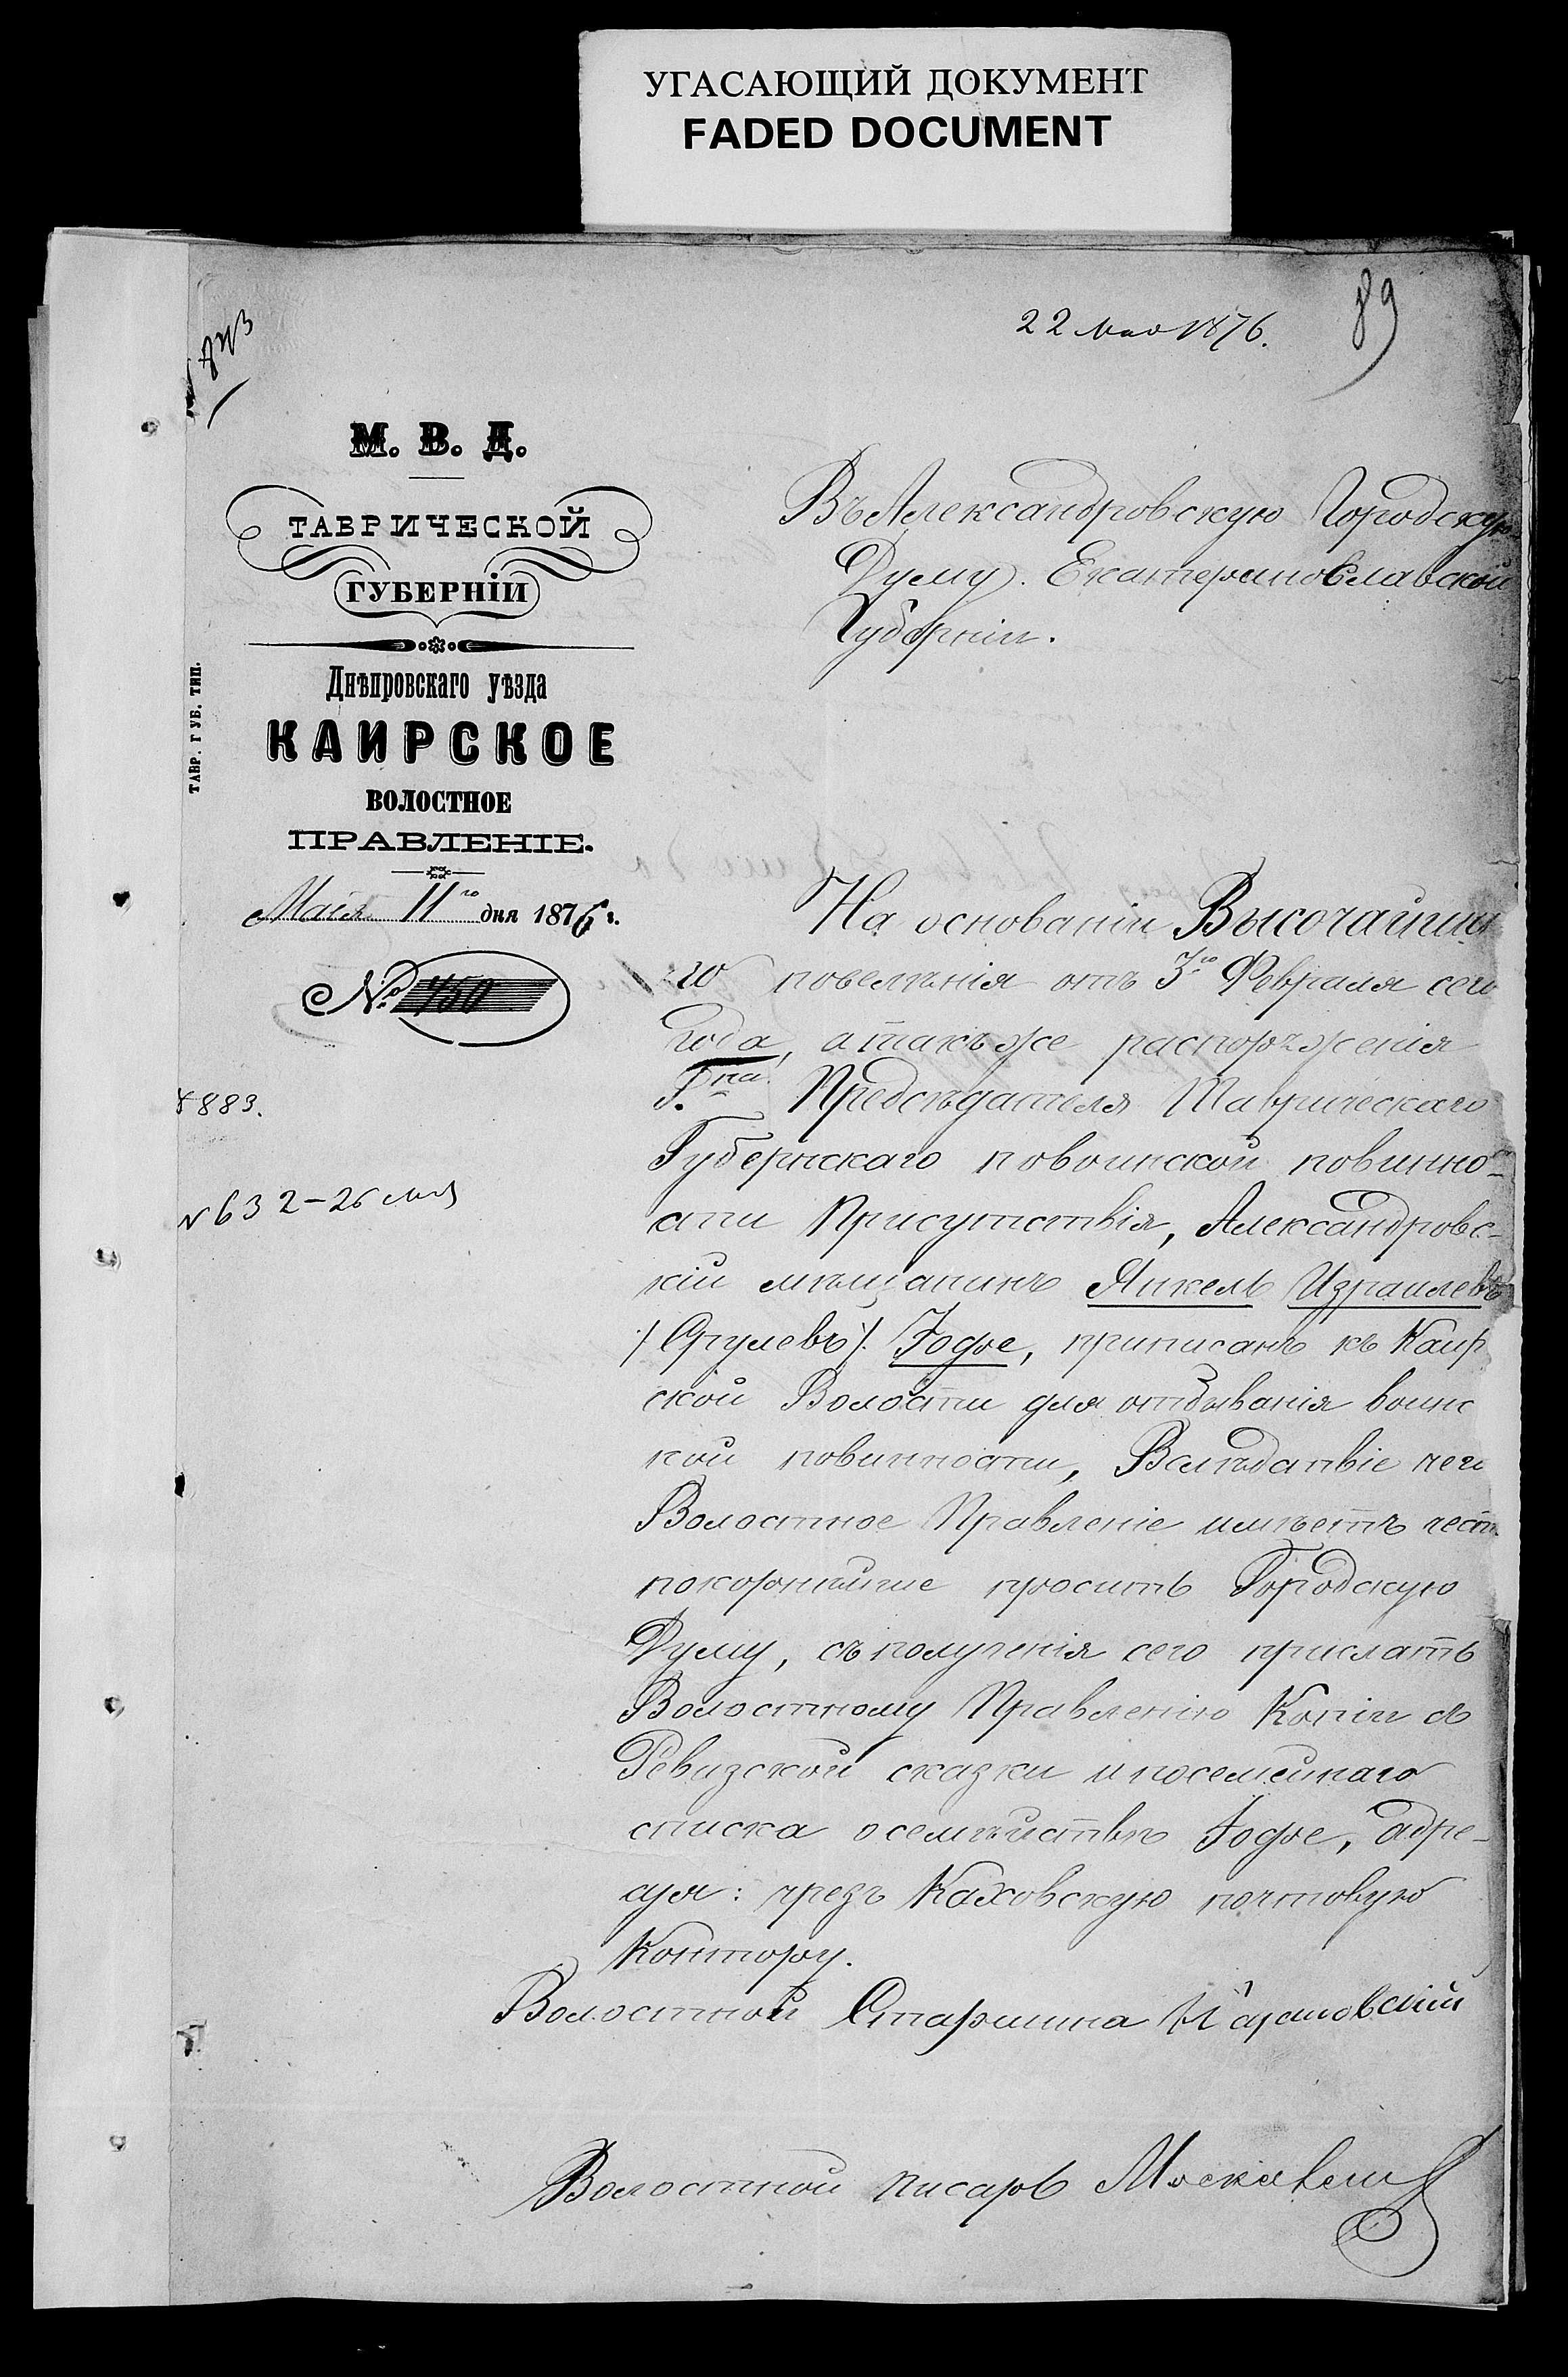 УГАСАЮЩИЙ ДОКУМЕНТ
FADED DOCUMENT
22 мая 1876.
89
М. В. Д.
ТАВРИЧЕСКОЙ
ГУБЕРНІИ
Днѣпровскаго уѣзда
КАИРСКОЕ
ВОЛОСТНОЕ
ПРАВЛЕНІЕ.
Маія 11го дня 1876 г.
№ 450
ТАВР. ГУБ. ТИП.
4883.
N 632 - 26 мая
Въ Александровскую Городскую
Думу. Екатеринославской
Губерніи.
На основаніи Высочайша
го повелѣнія отъ 3го Февраля сего
года, а такъже распоръженія
Г.на Предсѣдателя Таврическаго
Губернскаго по воинской повинно-
сти Присутствія, Александровс-
кій мѣщанинъ Янкель Израилевъ
/Срулевъ/. Іофе, приписанъ къ Каир
ской Волости для отбыванія воинс
кой повинности, Вслѣдствіе чего
Волостное Правленіе имѣетъ чест
покорнѣйше просить Городскую
Думу, съ полученія сего прислать
Волостному Правленію Копіи съ
Ревизской сказки и посемейнаго
списка о семѣйствѣ Іофе, адре-
суя: чрезъ Каховскую почтовую
Контору.
Волостной Старшина
Волостной писарь